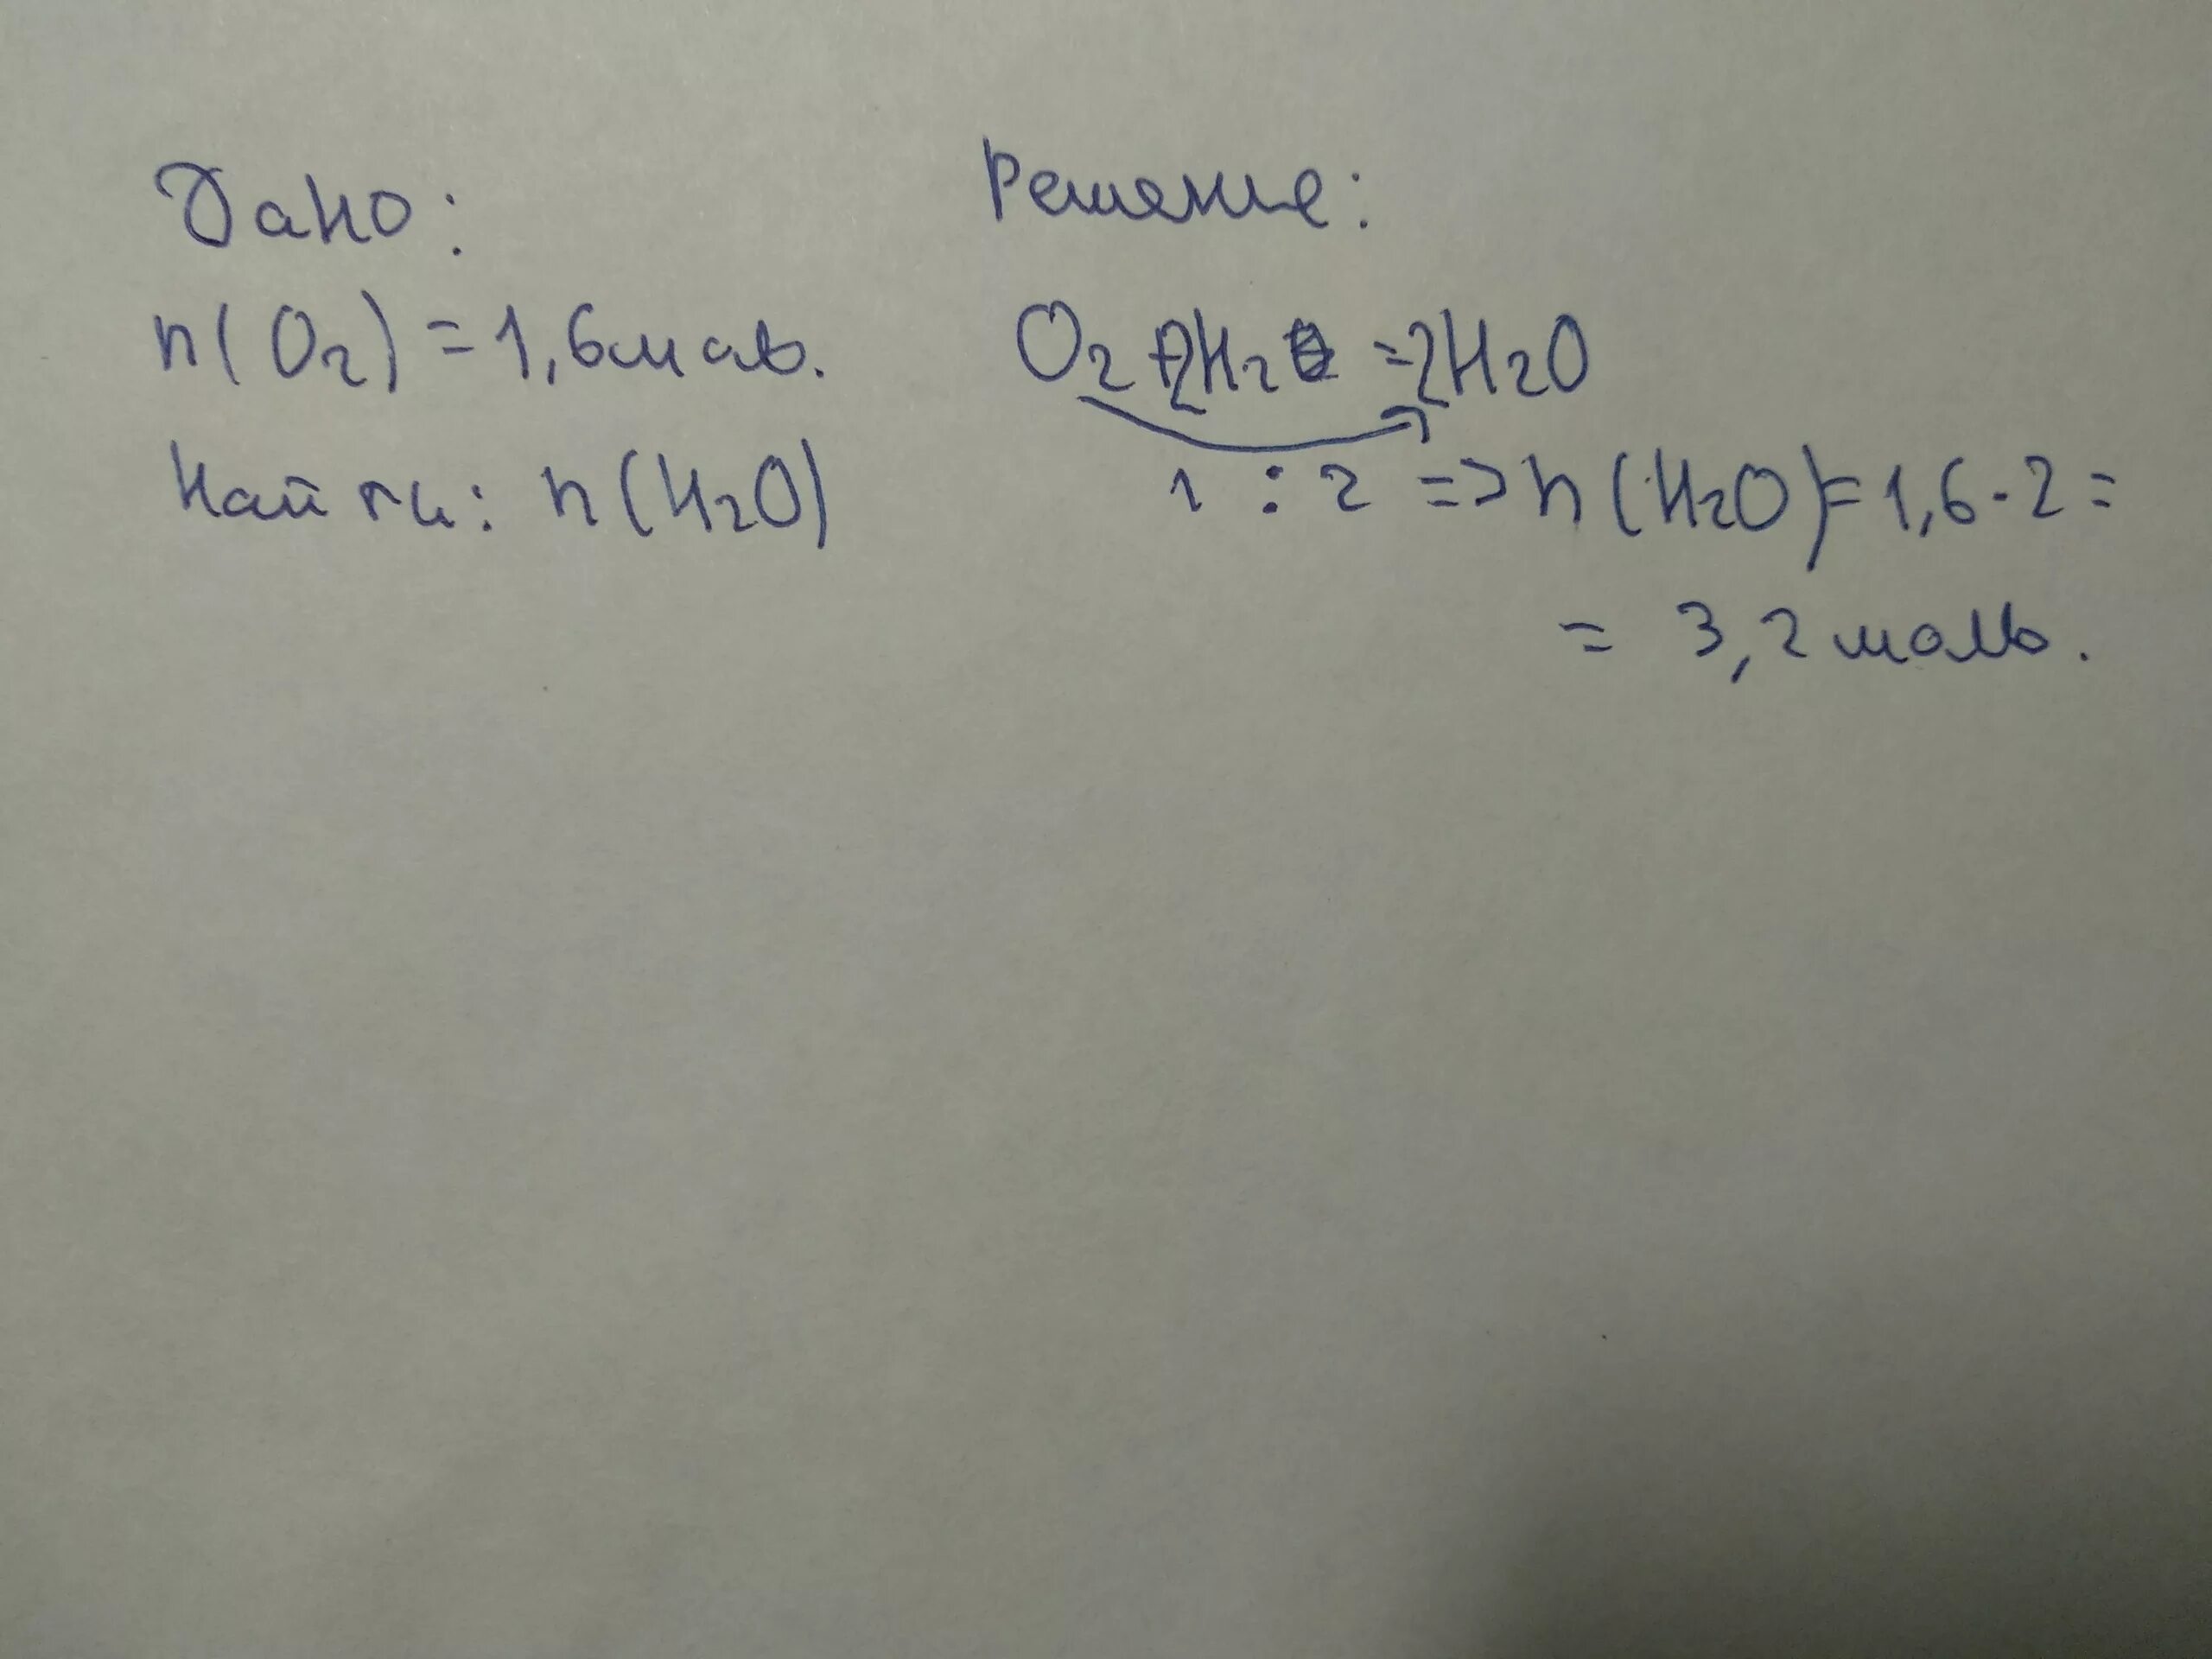 Дано:
n(O₂) = 1,6 моль.
Найти: n(H₂O)
Решение:
O₂ + 2H₂ = 2H₂O
1 : 2 => n(H₂O) = 1,6 · 2 =
= 3,2 моль.